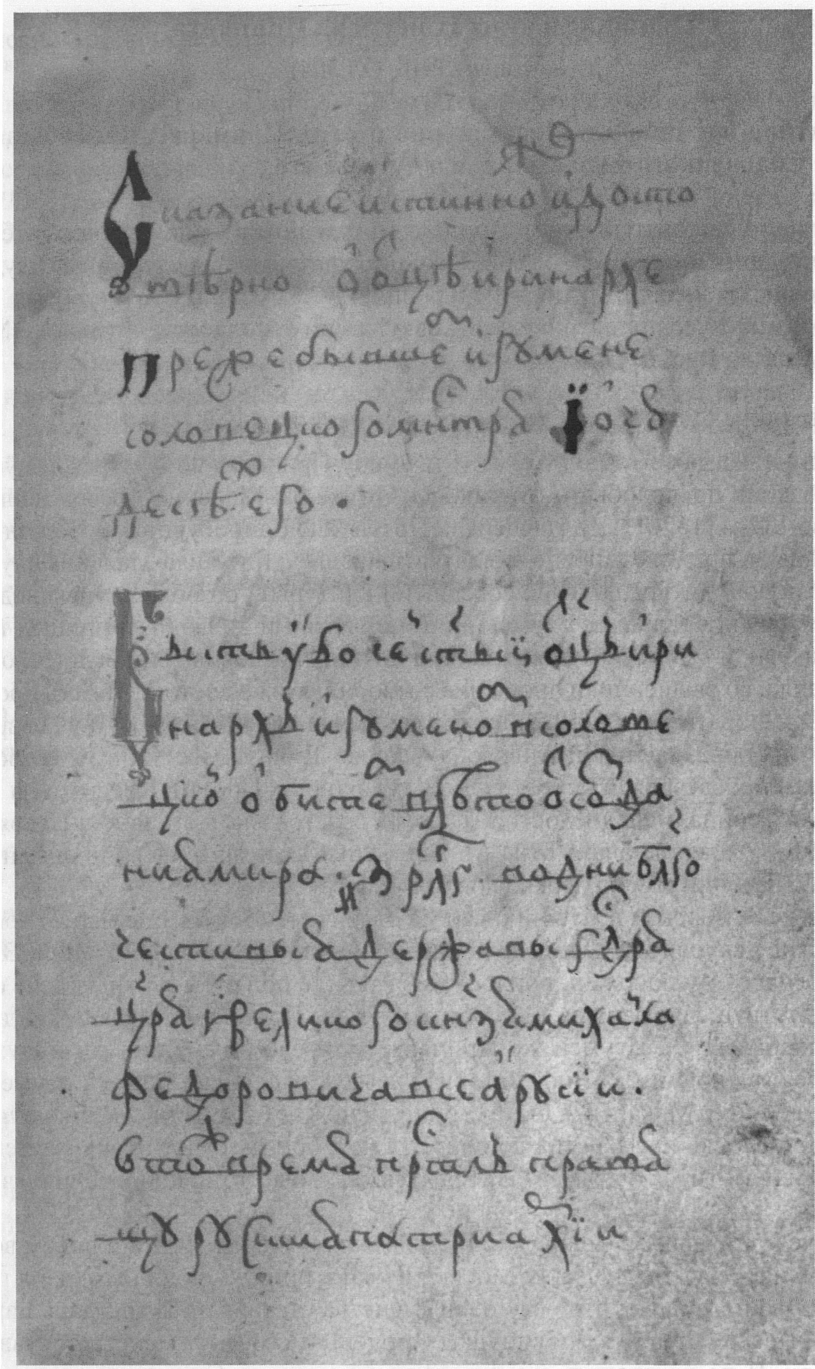 Сказание истинно и҆ досто
вѣрно ѡ҆ о҆ц҃ѣ и҆ринархе
преже бывше и҆гумене
соловецкого мн҃тря
и҆ о чю
десѣⷯ е҆го .
Бысть у҆бо че҆стныи҆ ѻ҆ц҃ъ и҆ри
нархъ и҆гуменоⷨ в соловѐ
цкоⷨ ѻ҆бители в лѣто ѿ созда
ния мира . ҂з р҃л҃г . во дни бл҃го
честивыя державы гдⷭ҇ря
цр҃я и҆ великого кн҃зя михаила
федоровича всеа҆ русїи .
в тоⷤ время прⷭ҇толъ правя
щу русийския патриаⷬхїи